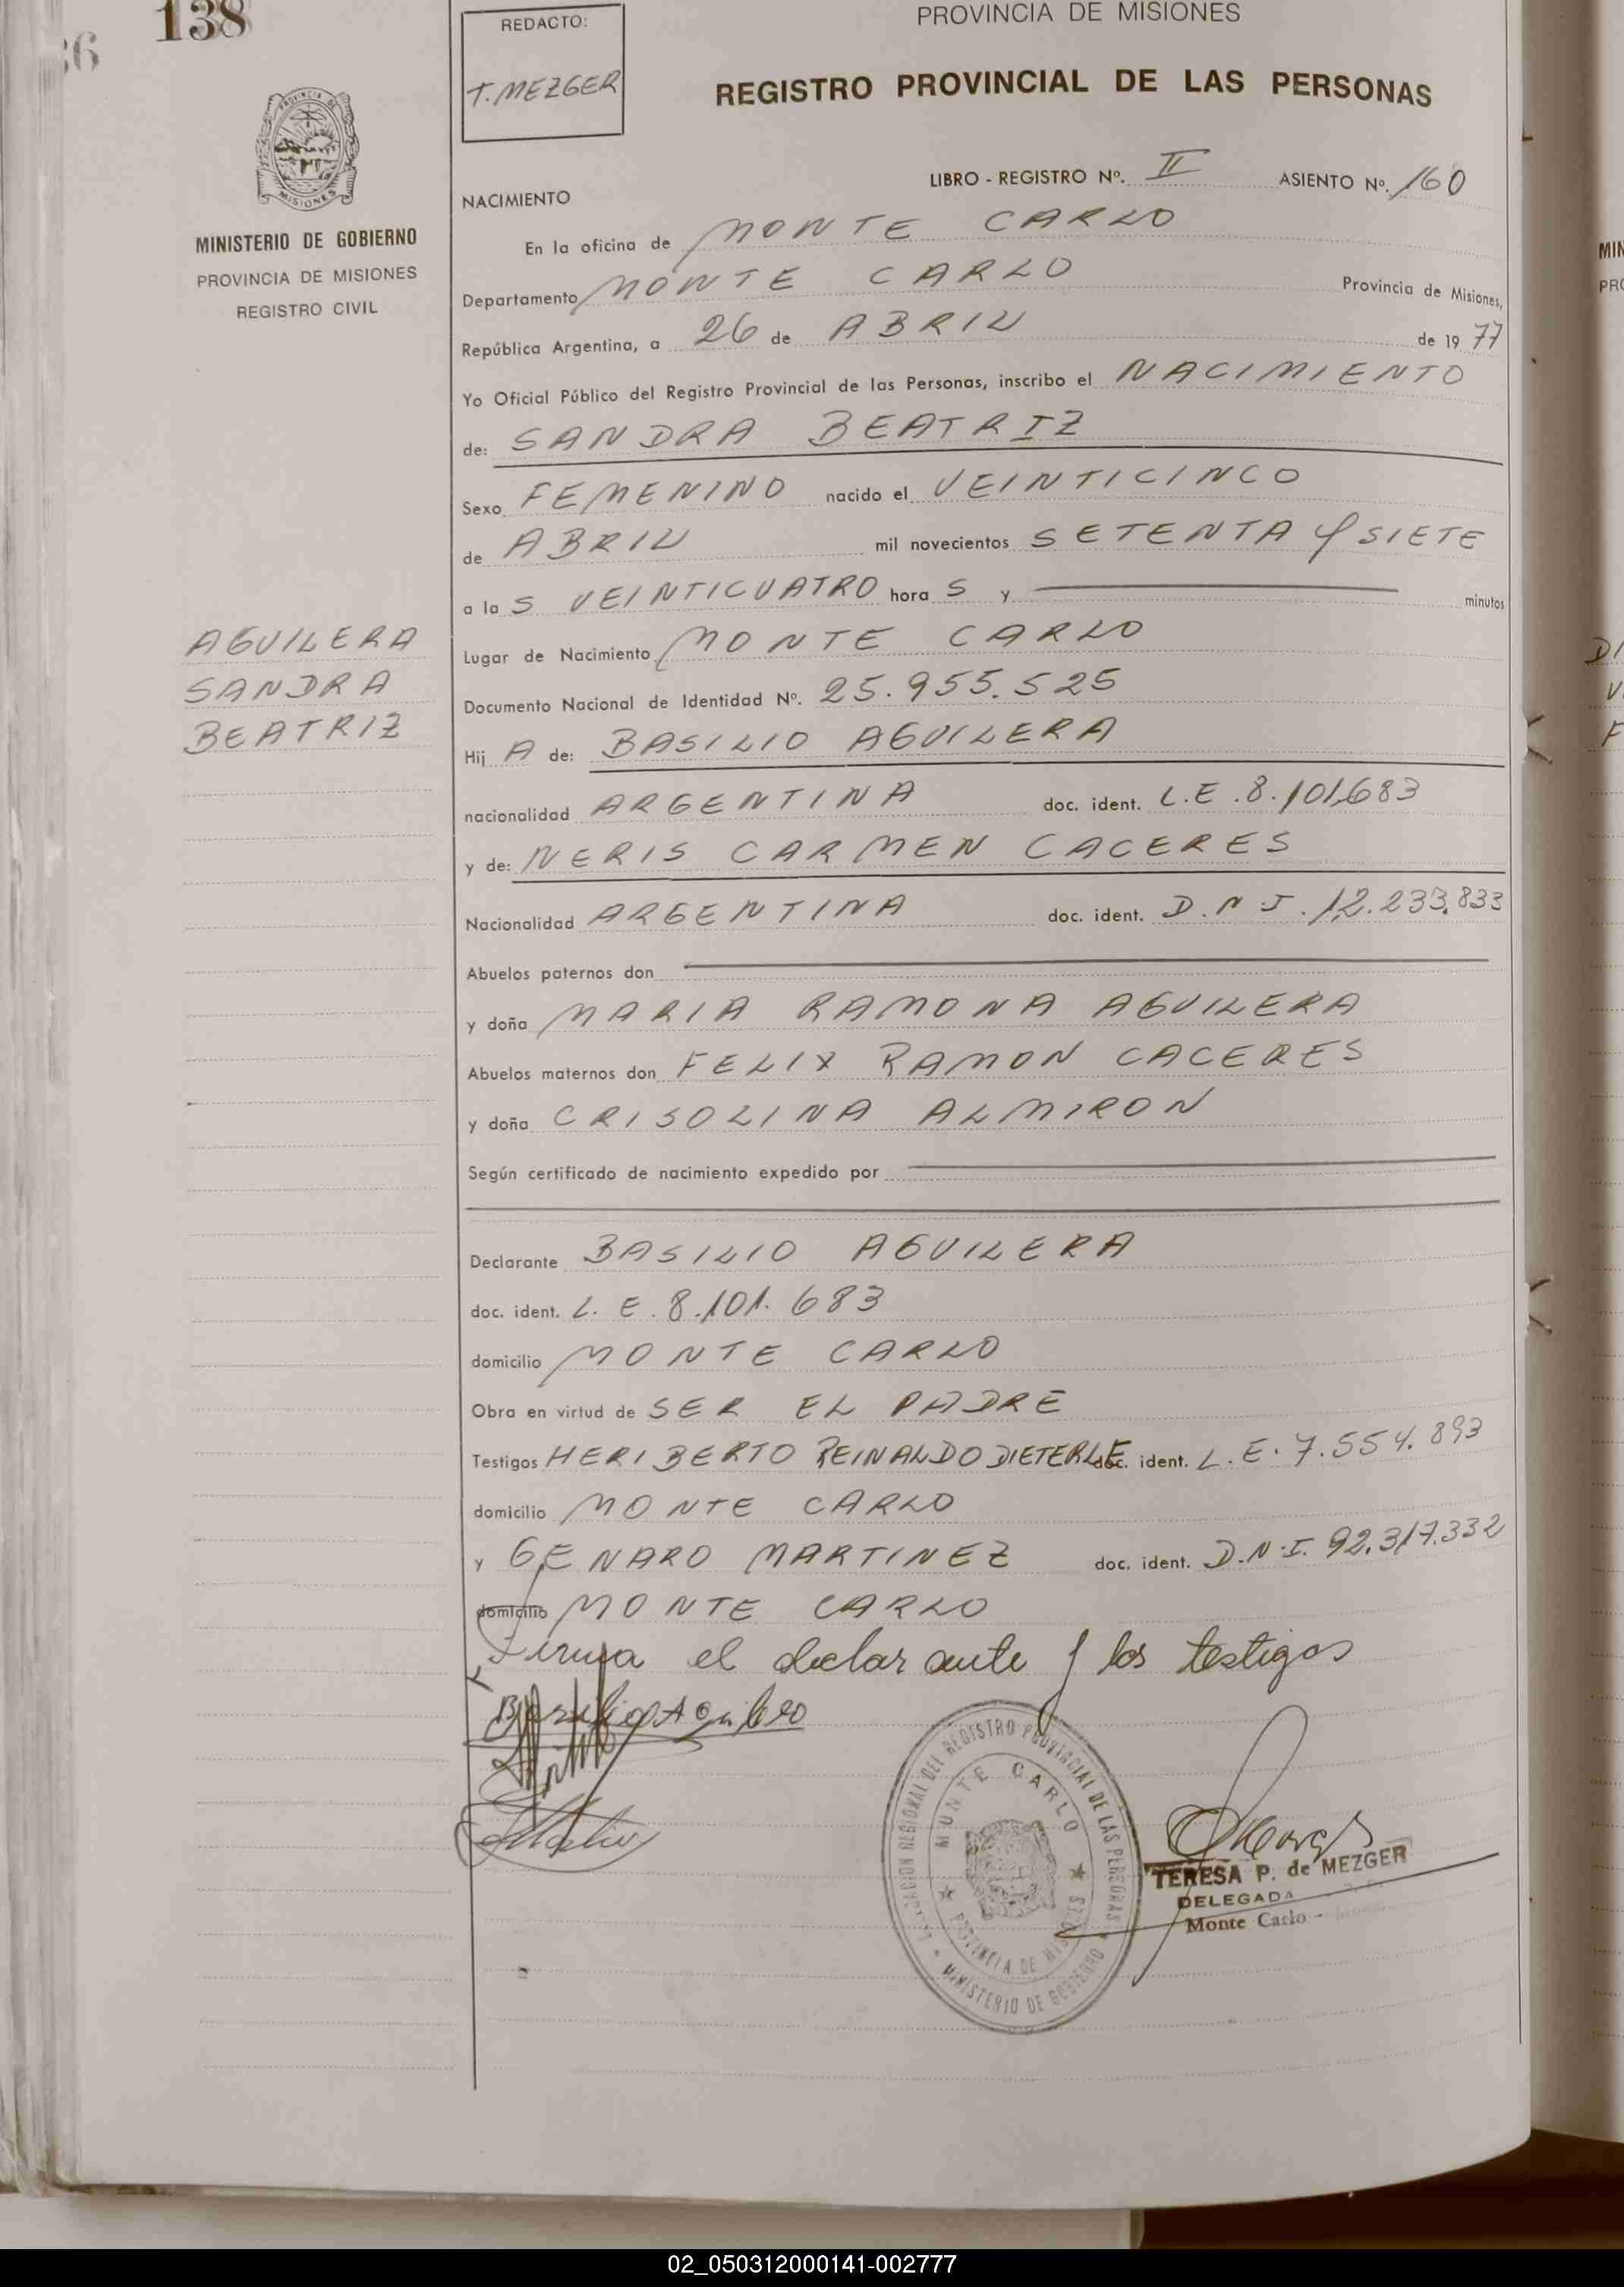 138
REDACTO:
T. MEZGER
PROVINCIA DE MISIONES
REGISTRO PROVINCIAL DE LAS PERSONAS
PROVINCIA DE
MISIONES
MINISTERIO DE GOBIERNO
PROVINCIA DE MISIONES
REGISTRO CIVIL
LIBRO - REGISTRO Nº. II ASIENTO Nº. 160
NACIMIENTO
En la oficina de MONTE CARLO
Departamento MONTE CARLO Provincia de Misiones,
República Argentina, a 26 de ABRIL de 19 77
Yo Oficial Público del Registro Provincial de las Personas, inscribo el NACIMIENTO
de: SANDRA BEATRIZ
Sexo FEMENINO nacido el VEINTICINCO
de ABRIL mil novecientos SETENTA Y SIETE
a la S VEINTICUATRO hora S y minutos
AGUILERA
SANDRA
BEATRIZ
Lugar de Nacimiento MONTE CARLO
Documento Nacional de Identidad Nº. 25.955.525
Hij A de: BASILIO AGUILERA
nacionalidad ARGENTINA doc. ident. L.E. 8.101.683
y de: NERIS CARMEN CACERES
Nacionalidad ARGENTINA doc. ident. D.N.I. 12.233.833
Abuelos paternos don
y doña MARIA RAMONA AGUILERA
Abuelos maternos don FELIX RAMON CACERES
y doña CRISOLINA ALMIRON
Según certificado de nacimiento expedido por
Declarante BASILIO AGUILERA
doc. ident. L.E. 8.101.683
domicilio MONTE CARLO
Obra en virtud de SER EL PADRE
Testigos HERIBERTO REINALDO DIETERLE doc. ident. L.E. 7.554.893
domicilio MONTE CARLO
y GENARO MARTINEZ doc. ident. D.N.I. 92.317.332
domicilio MONTE CARLO
Firma el declarante y los testigos
DELEGACION REGIONAL DEL REGISTRO PROVINCIAL DE LAS PERSONAS
MINISTERIO DE GOBIERNO
MONTE CARLO
PROVINCIA DE MISIONES
TERESA P. de MEZGER
DELEGADA
Monte Carlo -
02_050312000141-002777